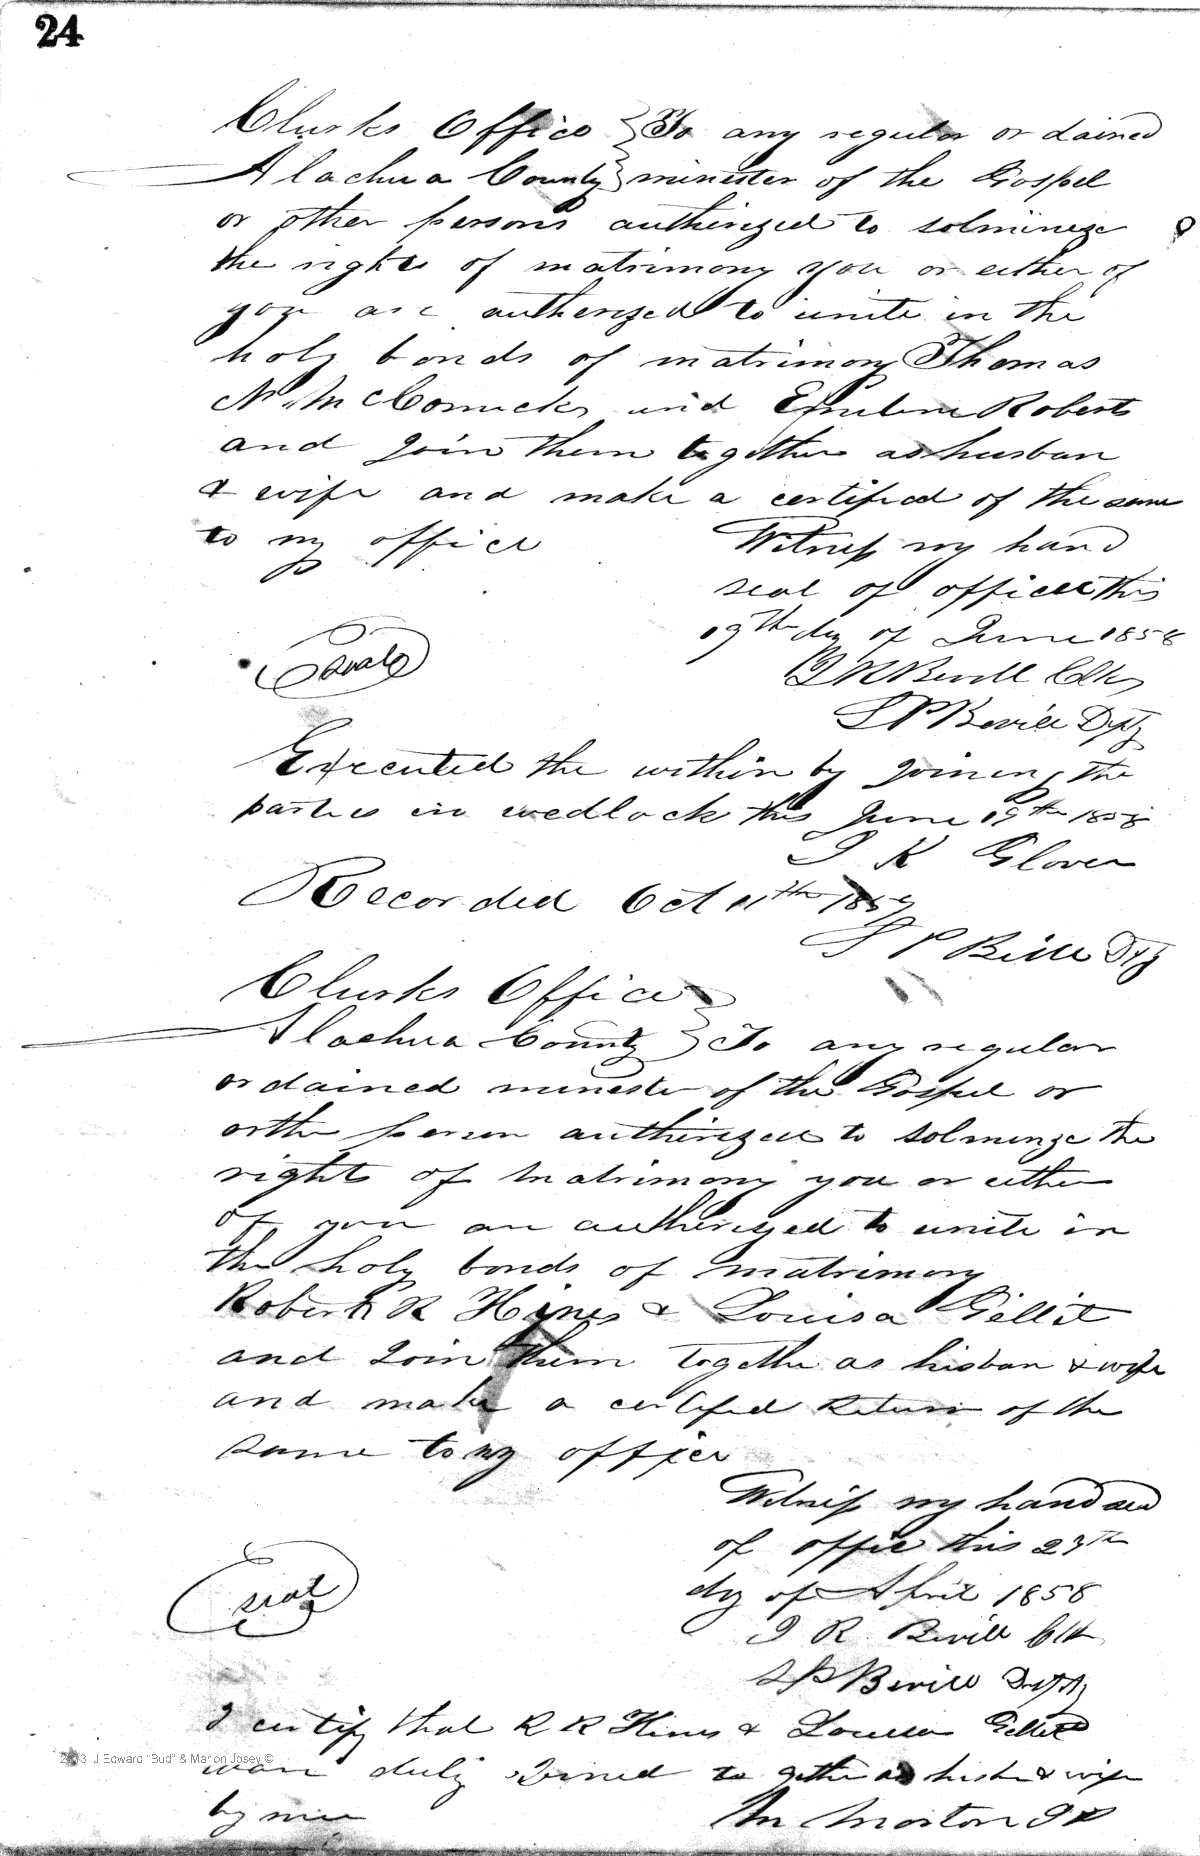 24
Clurks Office } To any regular or dained
Alachua County } minester of the Gospel
or other persons autherized to solminize
the rights of matrimony you or either of
you are autherized to unite in the
holy bonds of matrimony Thomas
N. McCormick and Emiline Roberts
and join them together as husban
& wife and make a certified of the same
to my office Witness my hand
seal of office this
19th day of June 1858
Seal
J R Bevill Clk
S P Bevill Dpty
Executed the within by joining the
parties in wedlock this June 19th 1858
J K Glover
Recorded Oct 11th
S P Bevill Dpty
Clurks Office }
Alachua County } To any regular
ordained minester of the Gospel or
orther person autherized to solmenze the
rights of matrimony you or either
of you are autherized to unite in
the holy bonds of matrimony
Robert R Hines & Louisa Gellit
and join them together as hisban & wife
and make a certified Return of the
same to my office
Witness my hand seal
of office this 23th
dy of April 1858
seal
J R Bevill Clk
S P Bevill Dpty
I certify that R R Hines & Louisa Gellit
ware duly Joined to gether as & wife
by mee M Morton J P
J Edward "Bud" & Marion Josey ©